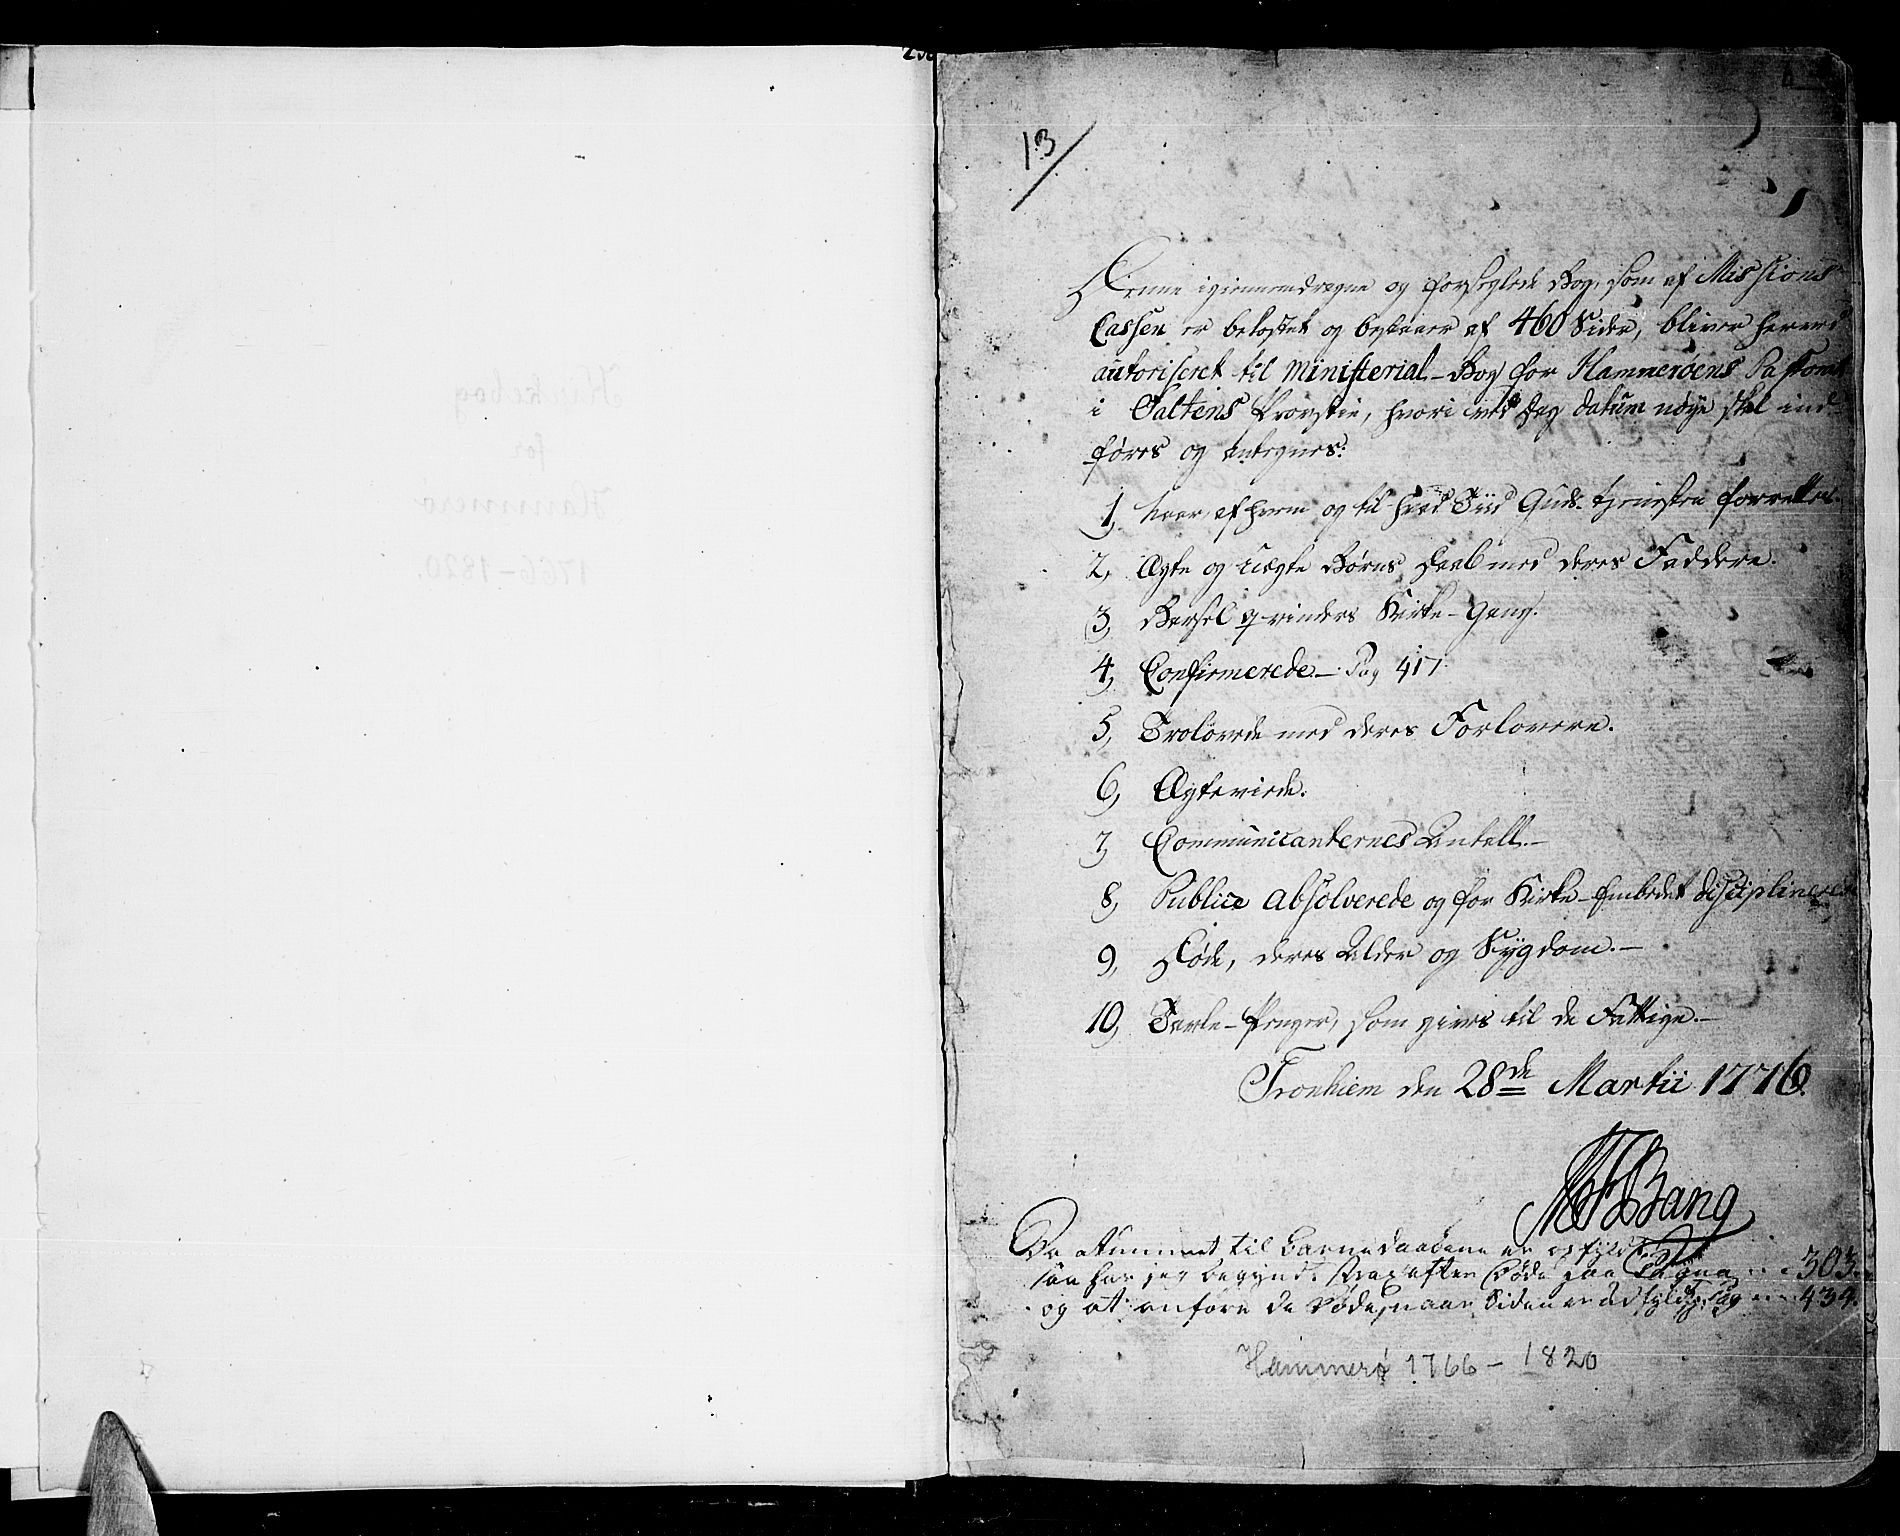 13
Denne igiennemdragne og forseglede Bog, som af Missions
Cassen er bekostet og bestaaer af 460 Sider, bliver herved
autoriseret til Ministerial-Bog for Hammerøens Pastorat
i Saltens Provstie, hvori ved Dag datum nøye skal ind-
føres og antegnes:
1, Naar, af hvem og til hvad Tiid Guds-tjenesten forrettes.
2, Ægte og Uægte Børns Daab med deres Faddere.
3, Barsel qvinders Kirke-Gang.
4, Confirmerede.- Pag 417
5, Trolovede med deres Forlovere.
6, Ægteviede.
7, Communicanternes Antall.-
8, Publice absolverede og for Kirke-Embedet disciplinerede
9, Døde, deres Alder og Sygdom.-
10, Tavle-Penger, som gives til de Fattige.-
Tronhiem den 28de Martii 1776.
Bang
Da Rummet til Barnedaabene er opfyldt
saa har jeg begyndt strax efter Døde paa Pagina 303
og at anføre de Døde, naar Siden er udfyldt, Pag 434.
Hammerø 1766 - 1820
Kirkebog
for
Hammerø
1766-1820.